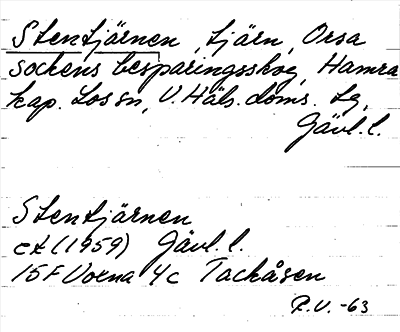 Stentjärnen, tjärn, Orsa
sockens besparingsskog, Hamra
kap. Los sn, V. Häls. doms. lg,
Gävl. l.
Stentjärnen
ek (1959) Gävl. l.
15F Voxna 4c Tackåsen
R.U. -63